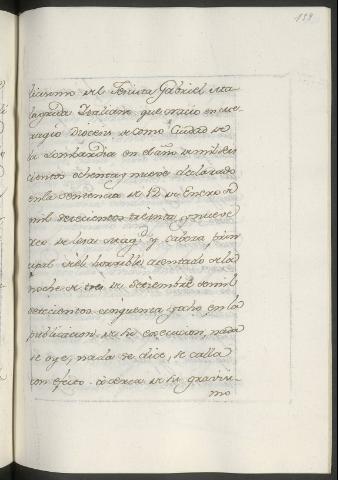 159
lissimo del Jesuita Gabriel Ma
lagrida Italiano que nacio en Me
nagio Diocesis de Como Ciudad de
la Lombardia en el año de mil seis
cientos ochenta y nueve declarado
en la sentencia de 12 de Enero de
mil setecientos sesenta y nueve
reo de lesa Mag.d y cabeza prin
cipal del horrible atentado de la
noche de tres de Septiembre de mil
setecientos cinquenta y ocho, en la
publicacion de su execucion, nada
se oye, nada se dice, se calla
con efeto acerca de su gravisi
mo